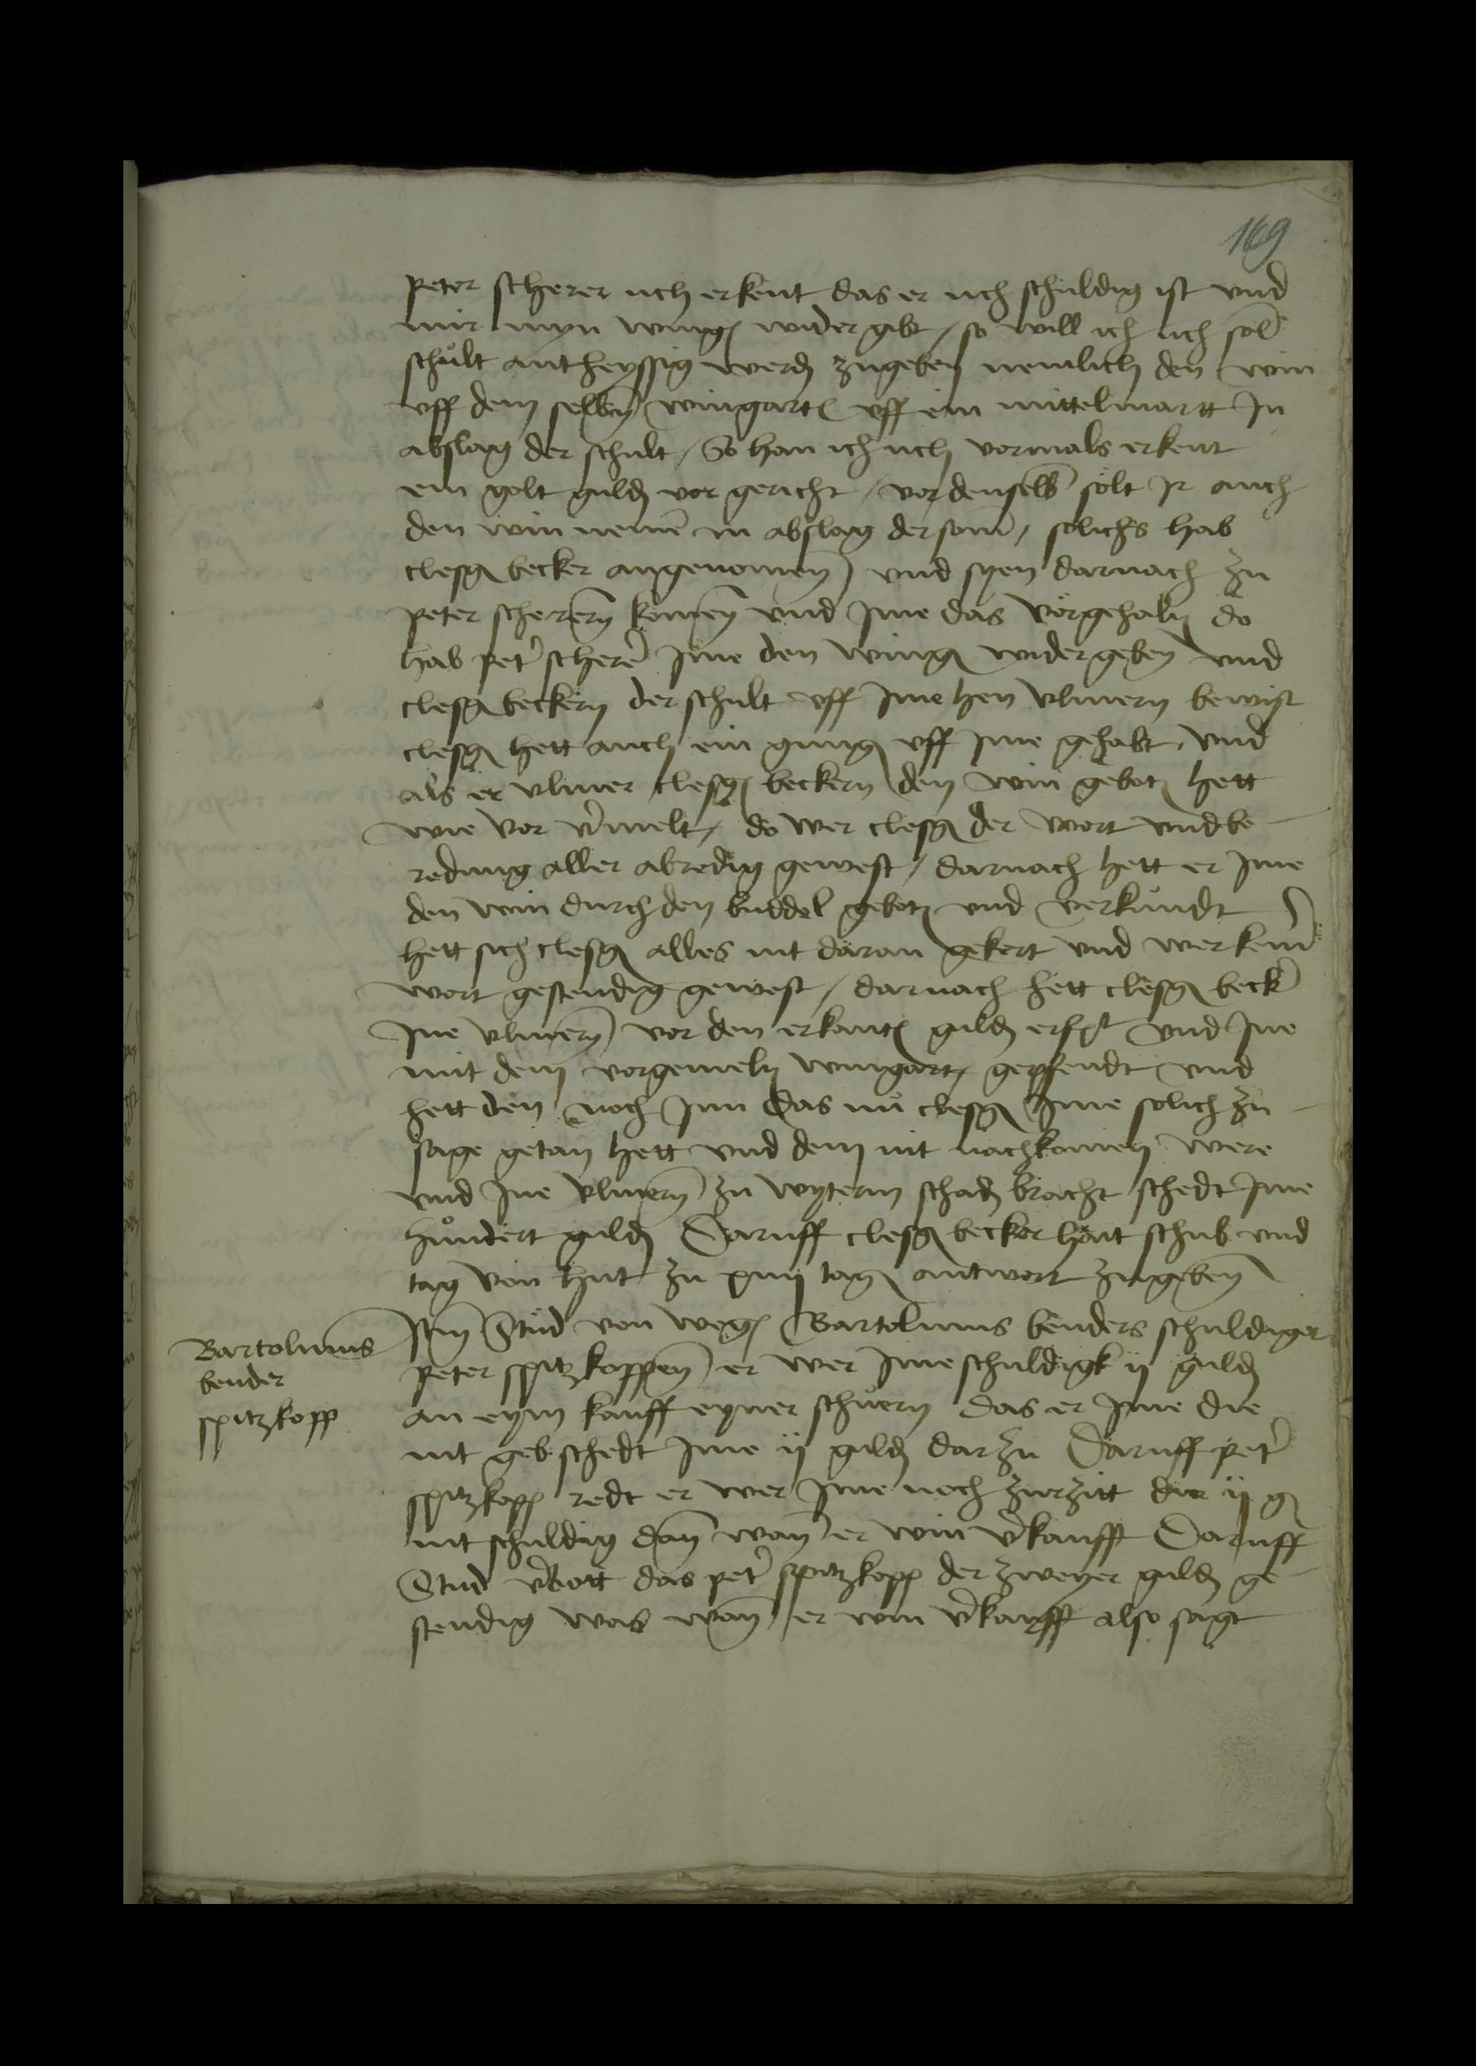 169
peter scherer uch erkent das er uch schuldig ist vnd
mir myn wing(er) widergibt / so will ich uch sol(ich)
schult antheyssig werd(en) zugeben nemlich den win
vff dem selben wingart(en) vff ein mittelmartt In
abslag der schult / So han ich uch vormals erkent
ein golt guld(en) vor gericht / vor denselb(en) solt Ir auch
den win nemen in abslag der som(m) / solichs hab
clesg(in) becker angenomen vnd syen darnach zu
peter scherern komen vnd Ime das vorgehalt(en) do
hab pet(er) scherer Ime den wing(art) widergeben vnd
clesg(in) beckern der schult vff Ime hen vlmern bewist
clesg(in) hett auch ein gnug(en) vff Ime gehabt vnd
als er vlmer clesg(in) beckern den win gebot(en) hett
wie vor v(er)melt / do wer clesg(in) der wort vnd be-
redung aller abredig gewest / darnach hett er Ime
den win durch den buddel gebot(en) vnd verkundt
hett sich clesg(in) alles nit daran gekert vnd wer keins
wort gestendig gewest / darnach hett clesg(in) becker
Ine vlmern vor den erkant(en) guld(en) erf(olg)t vnd Ine
mit dem vorgemelt(en) wingart(en) gepfendt vnd
hett den noch Inn Das nu clesg(in) Ime solich zu-
sage getan hett vnd dem nit nachkomen were
vnd Ine vlmern zu wyterm schad(en) bracht schedt Ime
hundert guld(en) Daruff clesg(in) becker hait schub vnd
tag von hut zu xiiij tag(en) antwort zugeben
Bartolmeus
bender
spitzkopp
It(e)m Stud von weg(en) Bartolmus benders schuldiget
peter spitzkoppen er wer Ime schuldigk ij guld(en)
an eym kauff eyner schuern das er Ime die
nit geb schedt Ime ij guld(en) darzu Daruff pet(er)
spitzkopp redt er wer Ime noch zurzitt die ij g(ulden)
nit schuldig dan wan er win v(er)kaufft Daruff
Stud v(er)bott das pet(er) spitzkopp der zweyer guld(en) ge-
stendig was wan er win v(er)kaufft also sagt